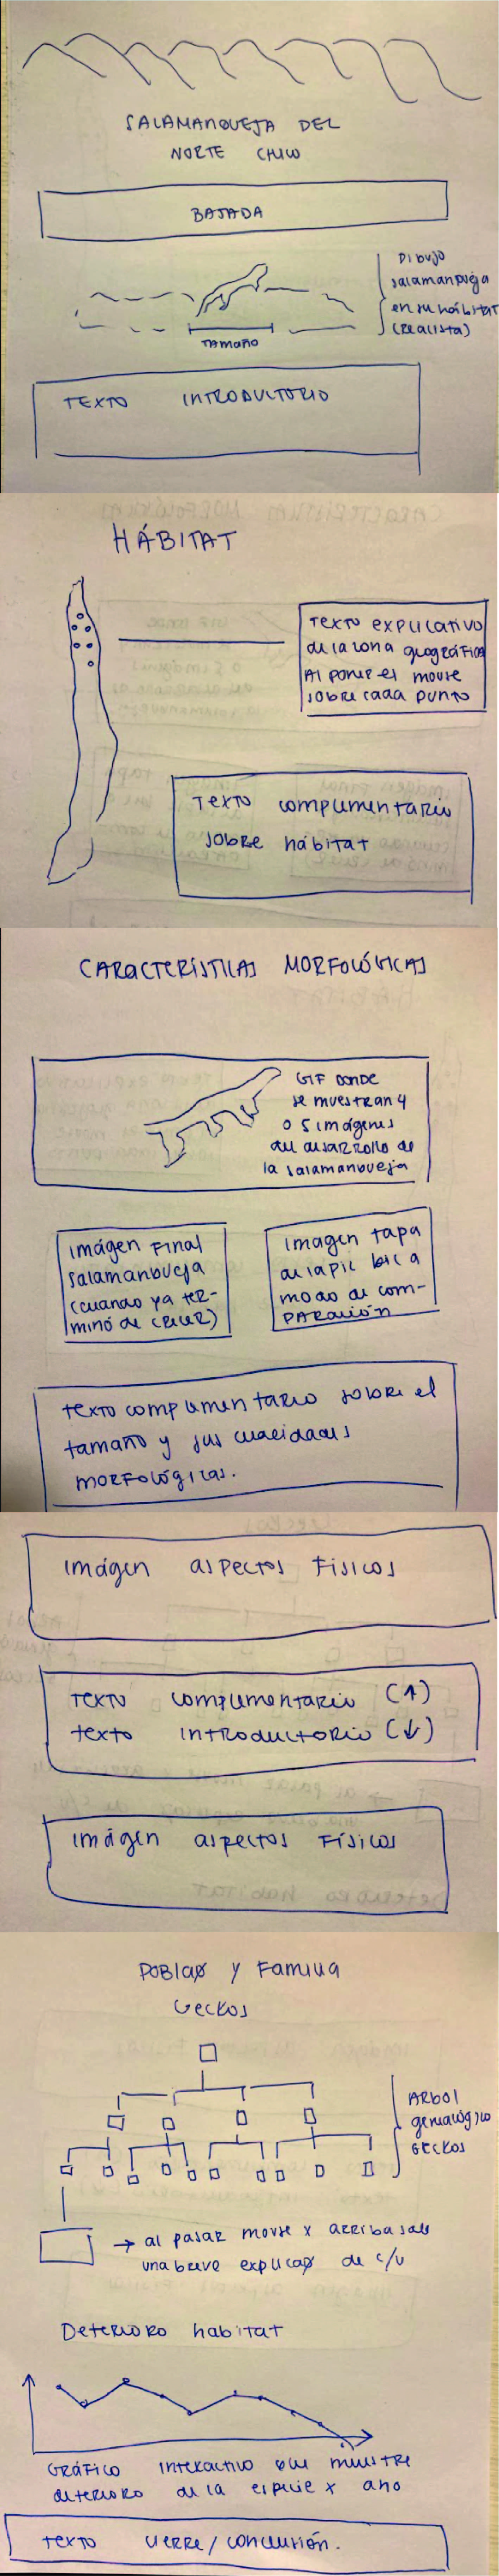 SALAMANQUEJA DEL
NORTE CHICO
BAJADA
Dibujo
salamanqueja
en su hábitat
(realista)
TAMAÑO
TEXTO INTRODUCTORIO
HÁBITAT
Texto explicativo
de la zona geográfica
Al poner el mouse
sobre cada punto
Texto complementario
sobre hábitat
CARACTERÍSTICAS MORFOLÓGICAS
GIF DONDE
se muestran 4
o 5 imágenes
del desarrollo de
la salamanqueja
imágen Final
salamanqueja
(cuando ya ter-
minó de crecer)
Imagen tapa
de lapiz bic a
modo de com-
PARACIÓN
texto complementario sobre el
tamaño y sus cualidades
morfológicas.
imágen aspectos Físicos
TEXTO complementario (↑)
texto introductorio (↓)
imágen aspectos Físicos
Poblaø y Familia
Geckos
ARbol
genealógico
Geckos
→ al pasar mouse x arriba sale
una breve explicaø de c/u
Deterioro habitat
GRÁFICO interactivo que muestre
deterioro de la especie x año
texto cierre/conclusión.